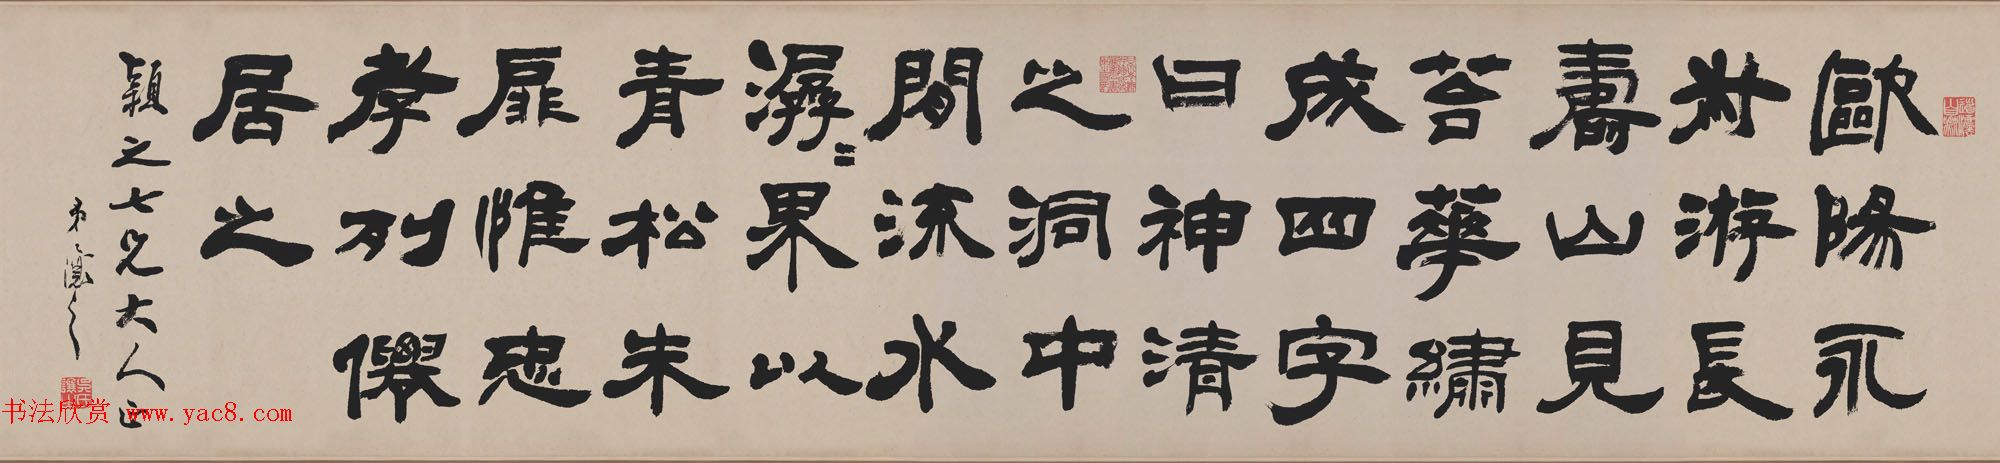 歐陽永
叔游長
壽山見
苔華繡
成四字
曰神清
之洞中
間流水
潺〻界以
青松朱
扉惟忠
孝列僊
居之
穎之七兄大人正
弟讓之
书法欣赏 www.yac8.com